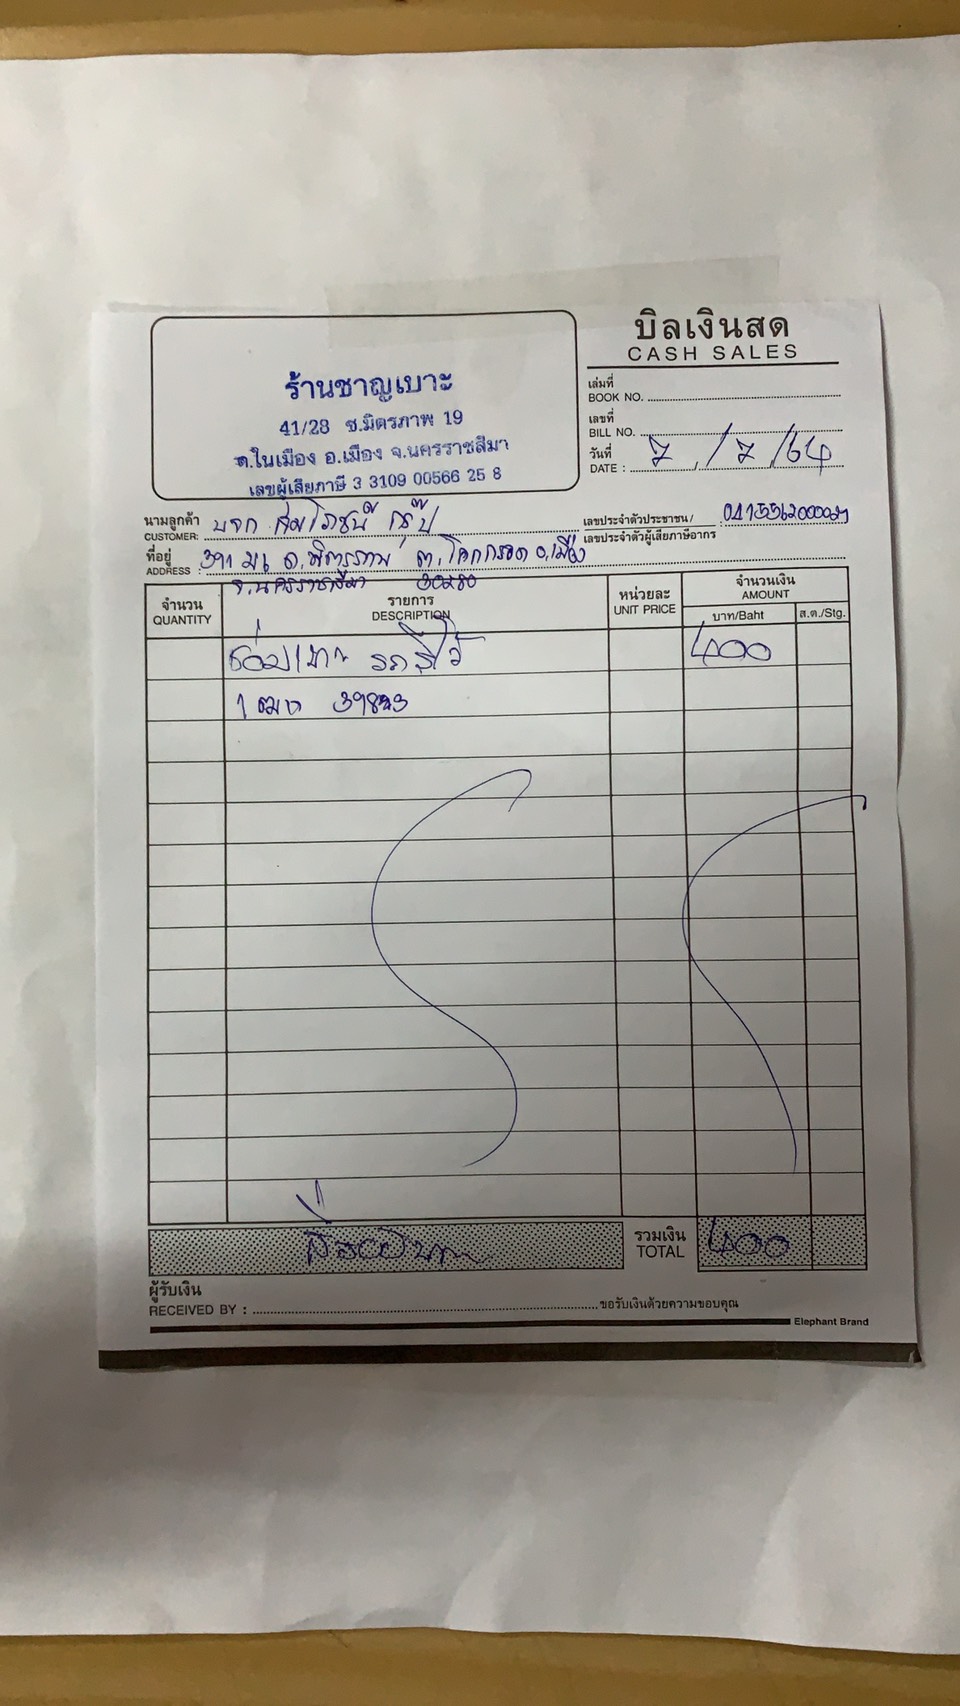 บิลเงินสด
CASH SALES
ร้านชาญเบาะ
41/28 ซ.มิตรภาพ 19
ต.ในเมือง อ.เมือง จ.นครราชสีมา
เลขผู้เสียภาษี 3 3109 00566 25 8
เล่มที่
BOOK NO.
เลขที่
BILL NO.
วันที่
DATE : 7 / 7 / 64
นามลูกค้า
CUSTOMER: บจก กรุ๊ป
เลขประจำตัวประชาชน /
เลขประจำตัวผู้เสียภาษีอากร
ที่อยู่
ADDRESS : 391 ถ.มิตรภาพ ต.โคกกรวด อ.เมือง
จ.นครราชสีมา 30280
จำนวน
QUANTITY
รายการ
DESCRIPTION
หน่วยละ
UNIT PRICE
จำนวนเงิน
AMOUNT
บาท/Baht
ส.ต./Stg.
ซ่อมเบาะ รถ 400
1
รวมเงิน
TOTAL 400
สี่ร้อยบาท
ผู้รับเงิน
RECEIVED BY :
ขอรับเงินด้วยความขอบคุณ
Elephant Brand